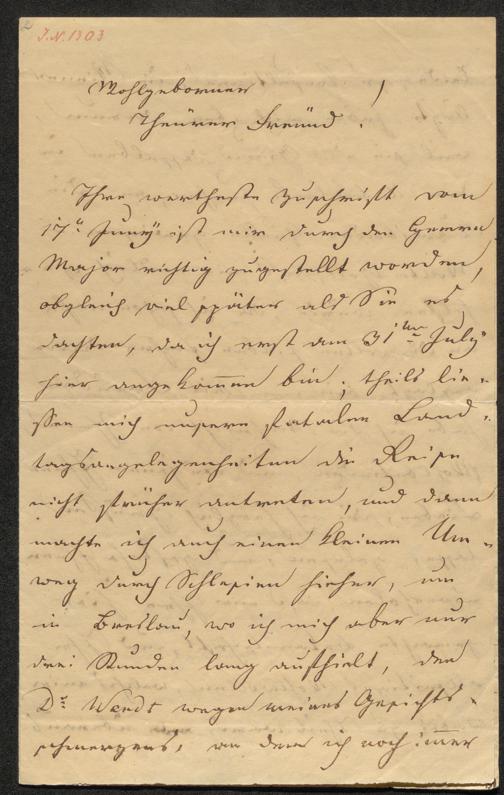 J.N. 1303
Wohlgeborner
Theürer Freünd!
Ihre wertheste Zuschrift vom
17t Junÿ ist mir durch den Herrn
Major richtig zugestellt worden,
obgleich viel später als Sie es
dachten, da ich erst am 31ten Julÿ
hier angekommen bin; theils lie-
ssen mich unsere fatalen Land-
tagsangelegenheiten die Reise
nicht früher antreten, und dann
machte ich auch einen kleinen Um-
weg durch Schlesien hieher, um
in Breslau, wo ich mich aber nur
drei Stunden lang aufhielt, den
Dr Wendt wegen meines Gesichts-
schmerzens, an dem ich noch immer